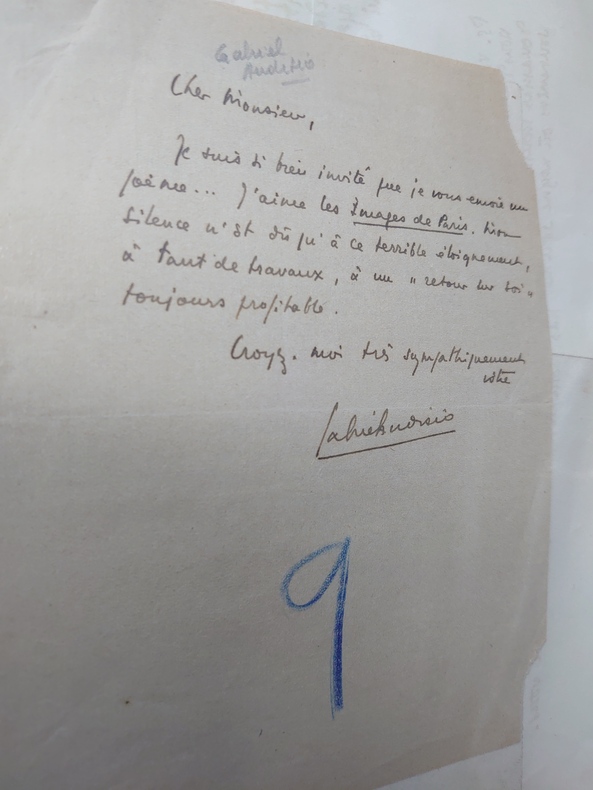 Gabriel
Audisio
Cher Monsieur,
Je suis si bien invité que je vous envoie un
poème... J'aime les Images de Paris. Mon
silence n'est dû qu'à ce terrible éloignement,
à tant de travaux, à un "retour sur soi"
toujours profitable.
Croyez-moi très sympathiquement
vôtre
Gabriel Audisio
9